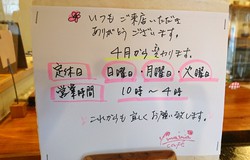 いつもご来店いただき
ありがとうございます。
4月から変わります。
定休日 日曜日・月曜日・火曜日
営業時間 10時〜4時
これからも宜しくお願い致します。